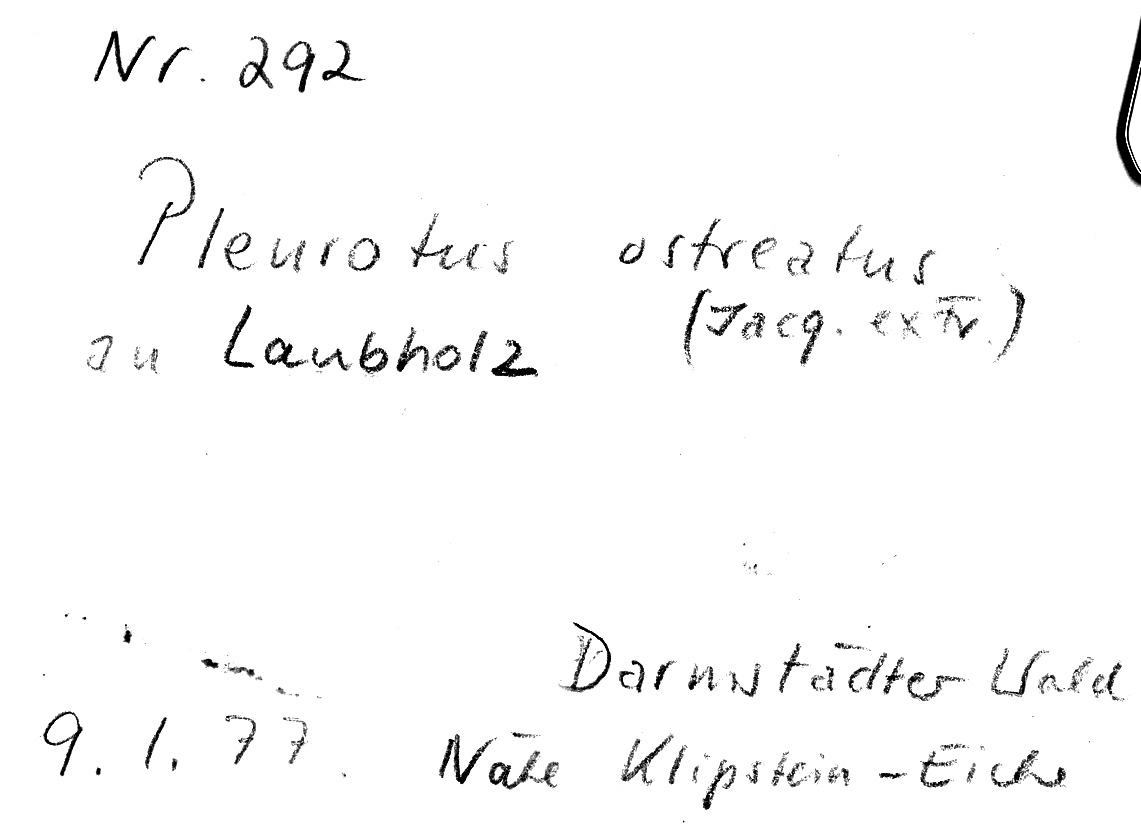 Nr. 292
Pleurotus ostreatus
(Jacq. ex Fr.)
an Laubholz
Darmstädter Wald
9.1.77. Nähe Klipstein-Eiche